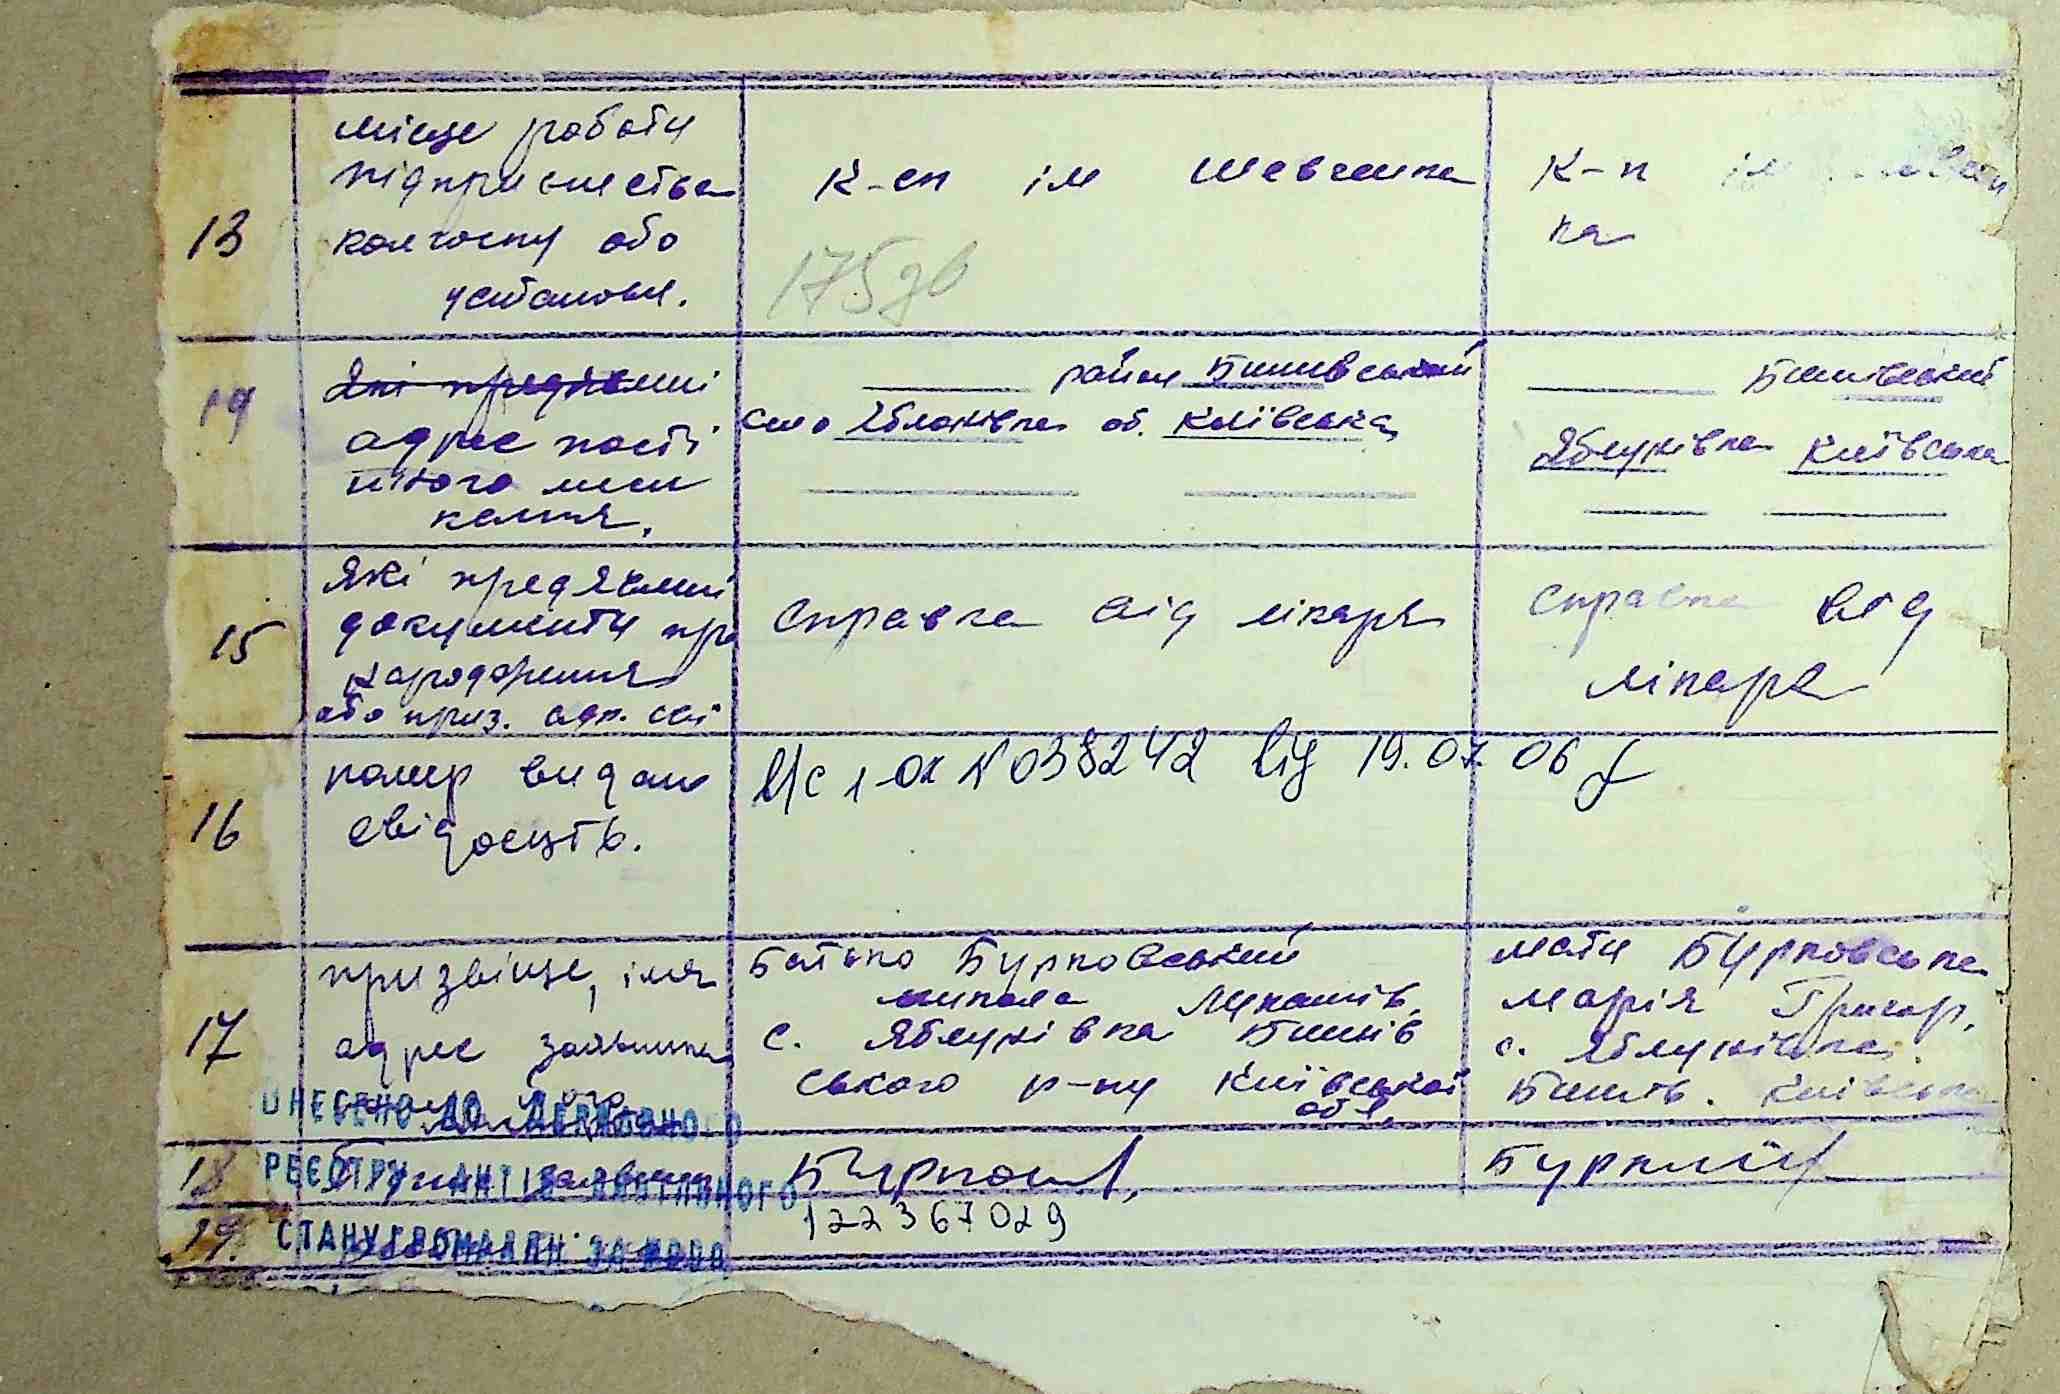 13
місце роботи
підприємства
колгоспу або
установи.
К-сп ім Шевченка
175зв
К-п ім
ка
14
Які предявлені
адрес пості
йного меш
кання.
район Бишівський
село Яблонівка об. Київська
Бишівський
Яблунівка Київська
15
Які предявлені
документи про
народження
або приз. адр. сві
Справка від лікаря
Справка від
лікаря
16
номер видано
свідоцтв.
I-ОК №038242 від 19.07.06
17
призвіще, імя
адрес заявника
Батько Бурковський
микола Лукашів.
с. Яблунівка Бишів
ського р-ну Київської
обл.
мати Бурковська
Марія Григор.
с. Яблунівка
Бишів. Київська
18
19.
ВНЕСЕНО ДО ДЕРЖАВНОГО
РЕЄСТРУ АКТІВ ЦИВІЛЬНОГО
СТАНУ ГРОМАДЯН ЗА №
122367029